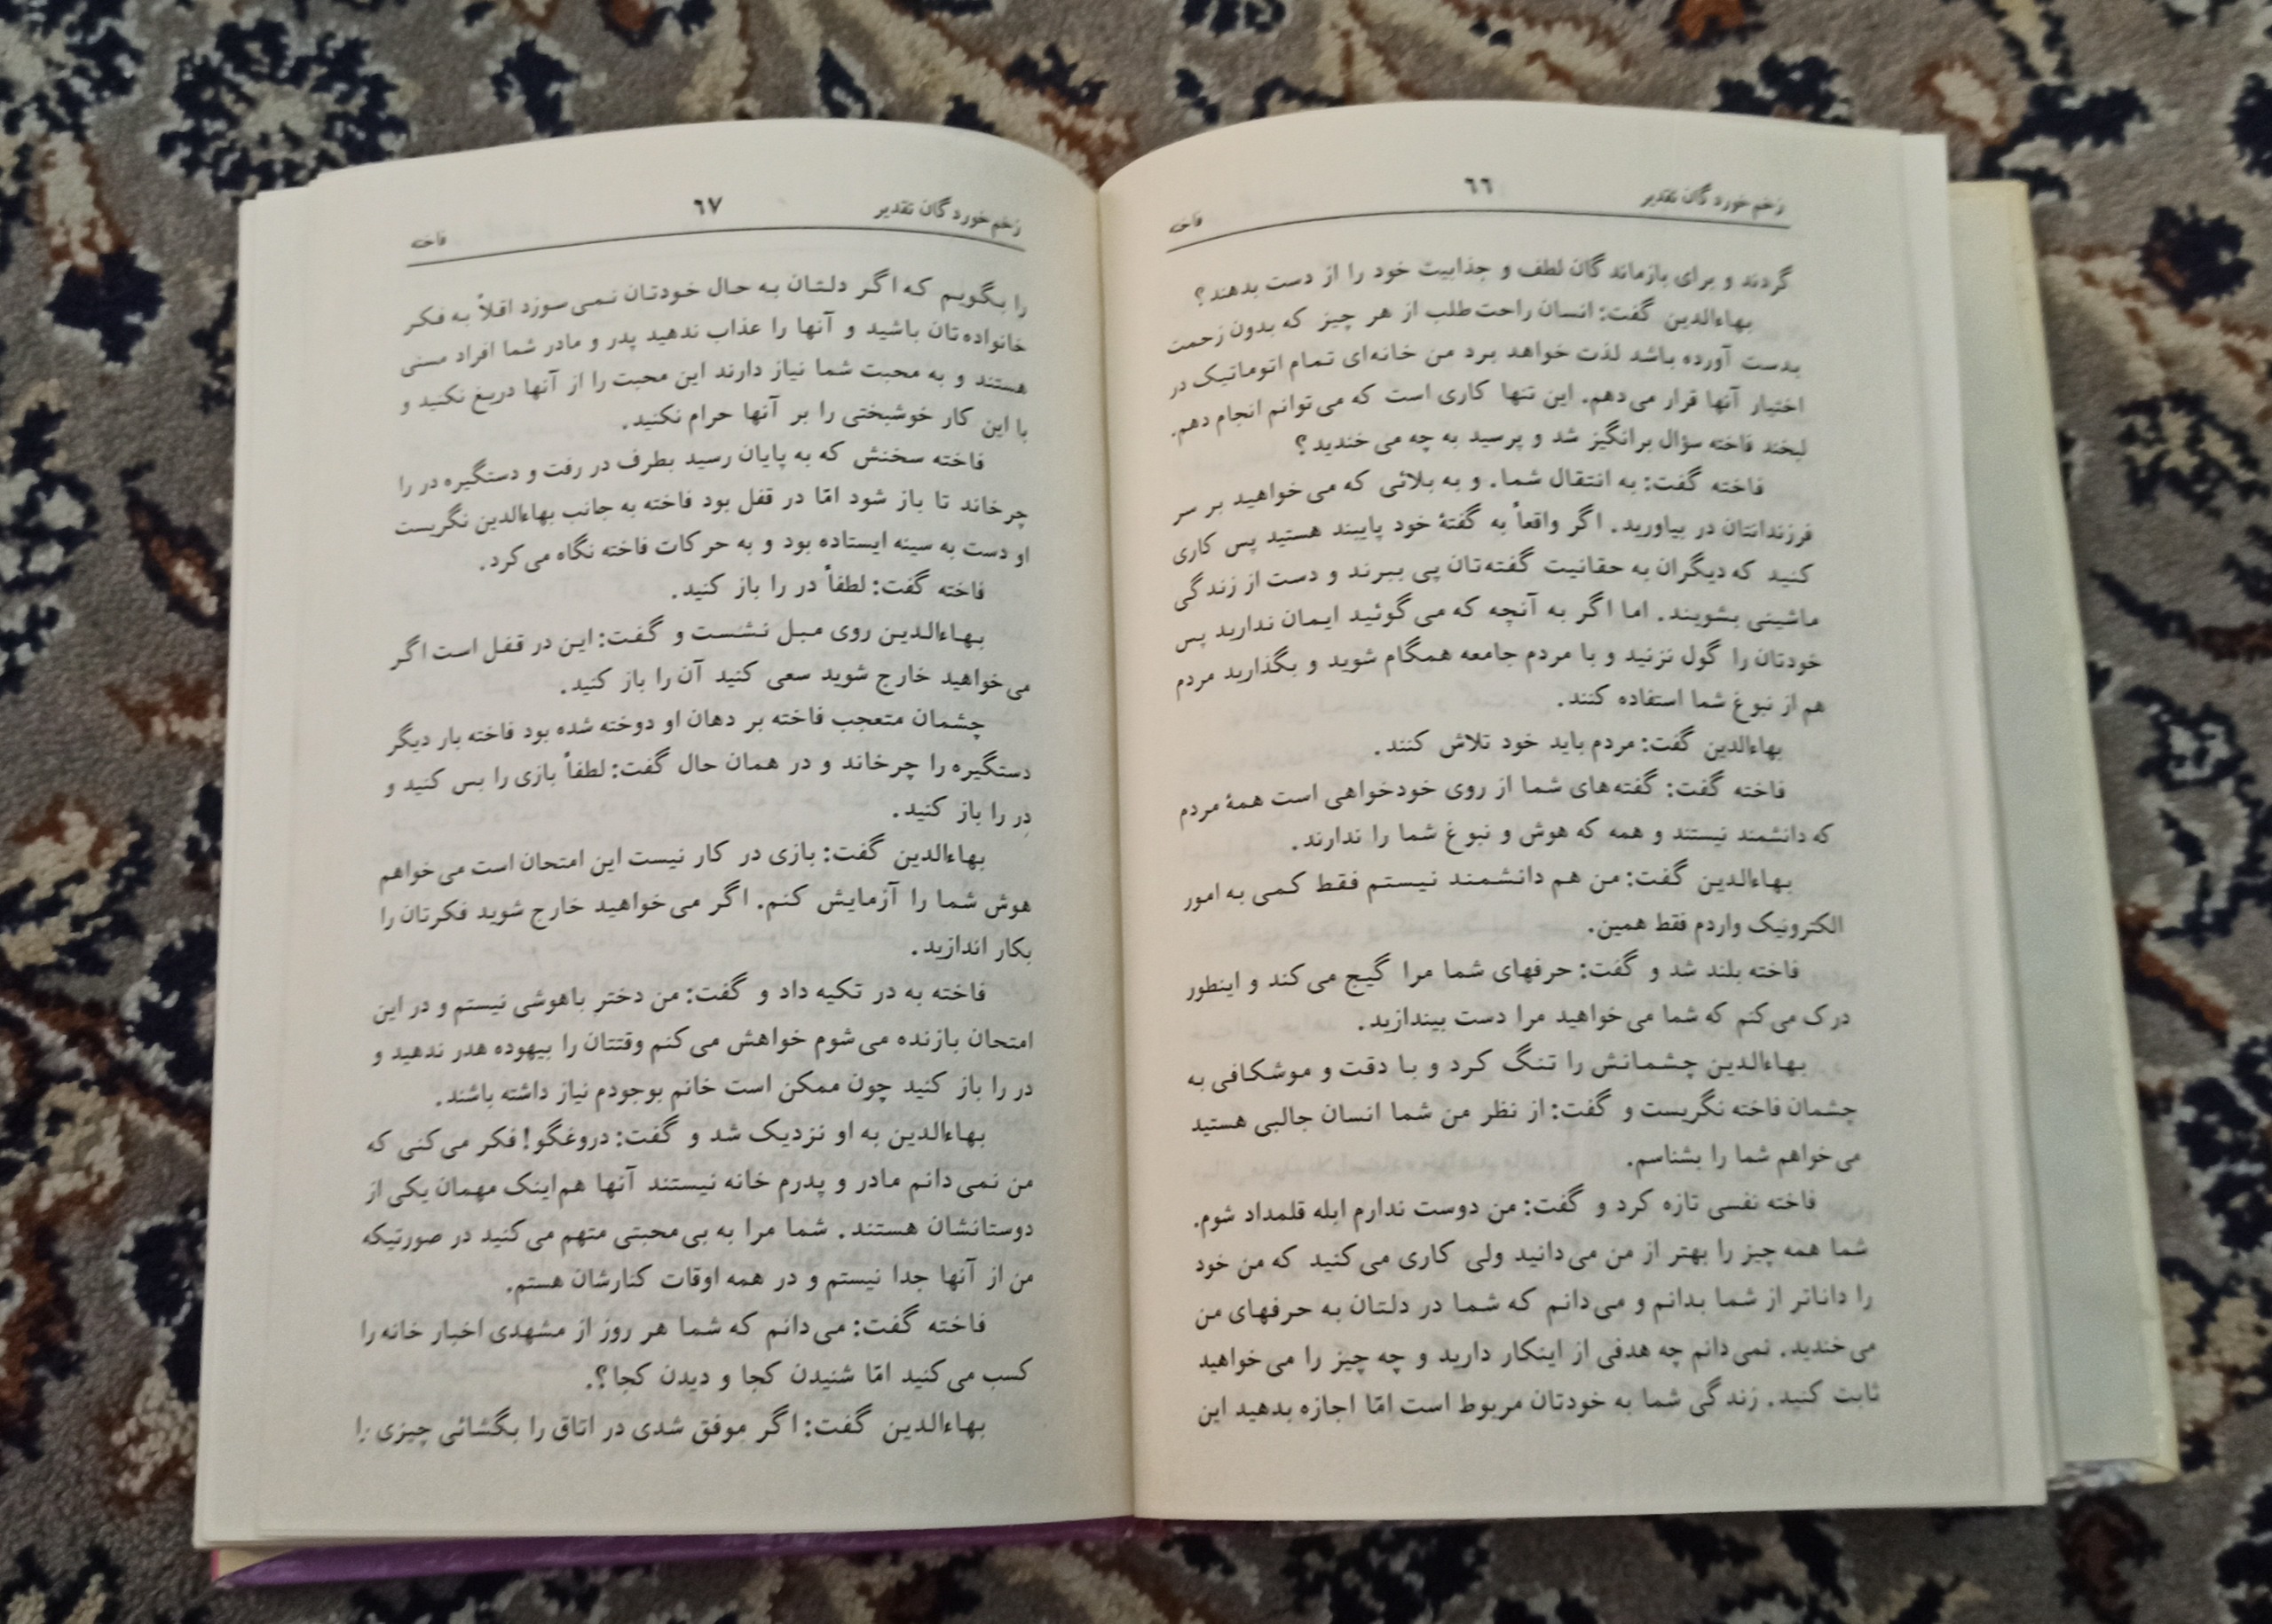 زخم خوردگان تقدیر ٦٦ فاخته
گردند و برای بازماندگان لطف و جذابیت خود را از دست بدهند؟
بهاءالدین گفت: انسان راحت‌طلب از هر چیز که بدون زحمت
بدست آورده باشد لذت خواهد برد من خانه‌ای تمام اتوماتیک در
اختیار آنها قرار می‌دهم. این تنها کاری است که می‌توانم انجام دهم.
لبخند فاخته سؤال برانگیز شد و پرسید به چه می‌خندید؟
فاخته گفت: به انتقال شما. و به بلائی که می‌خواهید بر سر
فرزندانتان در بیاورید. اگر واقعاً به گفتهٔ خود پایبند هستید پس کاری
کنید که دیگران به حقانیت گفته‌تان پی ببرند و دست از زندگی
ماشینی بشویند. اما اگر به آنچه که می‌گوئید ایمان ندارید پس
خودتان را گول نزنید و با مردم جامعه همگام شوید و بگذارید مردم
هم از نبوغ شما استفاده کنند.
بهاءالدین گفت: مردم باید خود تلاش کنند.
فاخته گفت: گفته‌های شما از روی خودخواهی است همهٔ مردم
که دانشمند نیستند و همه که هوش و نبوغ شما را ندارند.
بهاءالدین گفت: من هم دانشمند نیستم فقط کمی به امور
الکترونیک واردم فقط همین.
فاخته بلند شد و گفت: حرفهای شما مرا گیج می‌کند و اینطور
درک می‌کنم که شما می‌خواهید مرا دست بیندازید.
بهاءالدین چشمانش را تنگ کرد و با دقت و موشکافی به
چشمان فاخته نگریست و گفت: از نظر من شما انسان جالبی هستید
می‌خواهم شما را بشناسم.
فاخته نفسی تازه کرد و گفت: من دوست ندارم ابله قلمداد شوم.
شما همه چیز را بهتر از من می‌دانید ولی کاری می‌کنید که من خود
را داناتر از شما بدانم و می‌دانم که شما در دلتان به حرفهای من
می‌خندید. نمی‌دانم چه هدفی از اینکار دارید و چه چیز را می‌خواهید
ثابت کنید. زندگی شما به خودتان مربوط است امّا اجازه بدهید این
زخم خوردگان تقدیر ٦٧ فاخته
را بگویم که اگر دلتان به حال خودتان نمی‌سوزد اقلاً به فکر
خانواده‌تان باشید و آنها را عذاب ندهید پدر و مادر شما افراد مسنی
هستند و به محبت شما نیاز دارند این محبت را از آنها دریغ نکنید و
با این کار خوشبختی را بر آنها حرام نکنید.
فاخته سخنش که به پایان رسید بطرف در رفت و دستگیره در را
چرخاند تا باز شود امّا در قفل بود فاخته به جانب بهاءالدین نگریست
او دست به سینه ایستاده بود و به حرکات فاخته نگاه می‌کرد.
فاخته گفت: لطفاً در را باز کنید.
بهاءالدین روی مبل نشست و گفت: این در قفل است اگر
می‌خواهید خارج شوید سعی کنید آن را باز کنید.
چشمان متعجب فاخته بر دهان او دوخته شده بود فاخته بار دیگر
دستگیره را چرخاند و در همان حال گفت: لطفاً بازی را بس کنید و
در را باز کنید.
بهاءالدین گفت: بازی در کار نیست این امتحان است می‌خواهم
هوش شما را آزمایش کنم. اگر می‌خواهید خارج شوید فکرتان را
بکار اندازید.
فاخته به در تکیه داد و گفت: من دختر باهوشی نیستم و در این
امتحان بازنده می‌شوم خواهش می‌کنم وقتتان را بیهوده هدر ندهید و
در را باز کنید چون ممکن است خانم بوجودم نیاز داشته باشند.
بهاءالدین به او نزدیک شد و گفت: دروغگو! فکر می‌کنی که
من نمی‌دانم مادر و پدرم خانه نیستند آنها هم‌اینک مهمان یکی از
دوستانشان هستند. شما مرا به بی‌محبتی متهم می‌کنید در صورتیکه
من از آنها جدا نیستم و در همه اوقات کنارشان هستم.
فاخته گفت: می‌دانم که شما هر روز از مشهدی اخبار خانه را
کسب می‌کنید امّا شنیدن کجا و دیدن کجا؟.
بهاءالدین گفت: اگر موفق شدی در اتاق را بگشائی چیزی را